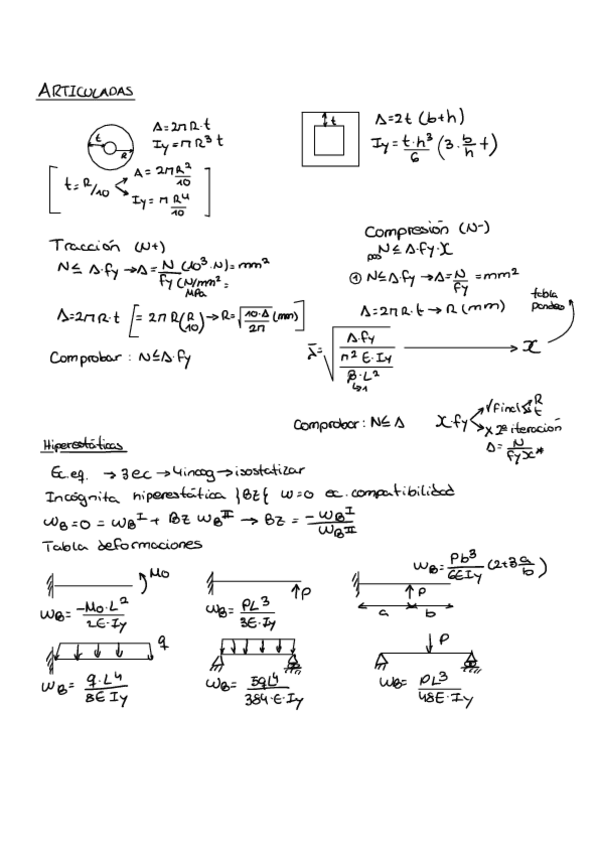 ARTICULADAS
t
R
A=2πR·t
Iy=πR³t
t=R/10
A=2πR²/10
Iy=πR⁴/10
t
A=2t(b+h)
Iy=t·h³/6 (3·b/h+1)
Tracción (N+)
N≤A·fy→A=N/fy (10³·N)/(N/mm²=MPa)=mm²
A=2πR·t [=2πR(R/10)→R=√(10·A/2π) (mm)]
Comprobar: N≤A·fy
Compresión (N-)
N≤A·fy·X
① N≤A·fy→A=N/fy=mm²
A=2πR·t→R(mm)
tabla pandeo
λ̄=√(A·fy/(π²E·Iy/β·L²))→X
↳1
Comprobar: N≤A X·fy
√ Final R t
X 2ª iteración
A=N/fyX*
Hiperestáticas
Ec.eq. →3ec→4incog→isostatizar
Incógnita hiperestática }BZ{ w=0 ec.compatibilidad
wB=0=wBᴵ+BZ wBᴵᴵ→BZ=-wBᴵ/wBᴵᴵ
Tabla deformaciones
Mo
wB=-Mo·L²/2E·Iy
P
wB=PL³/3E·Iy
P
a b
wB=Pb³/6EIy (2+3a/b)
q
wB=q·L⁴/8EIy
wB=5qL⁴/384·E·Iy
P
wB=PL³/48E·Iy